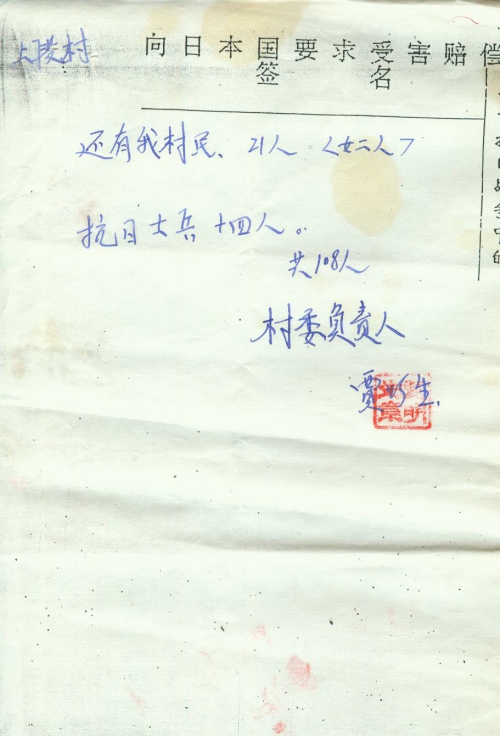 上陵村
向日本国要求受害赔偿
签名
还有我村民、21人〈女二人〉
抗日士兵十四人。
共108人
村委负责人